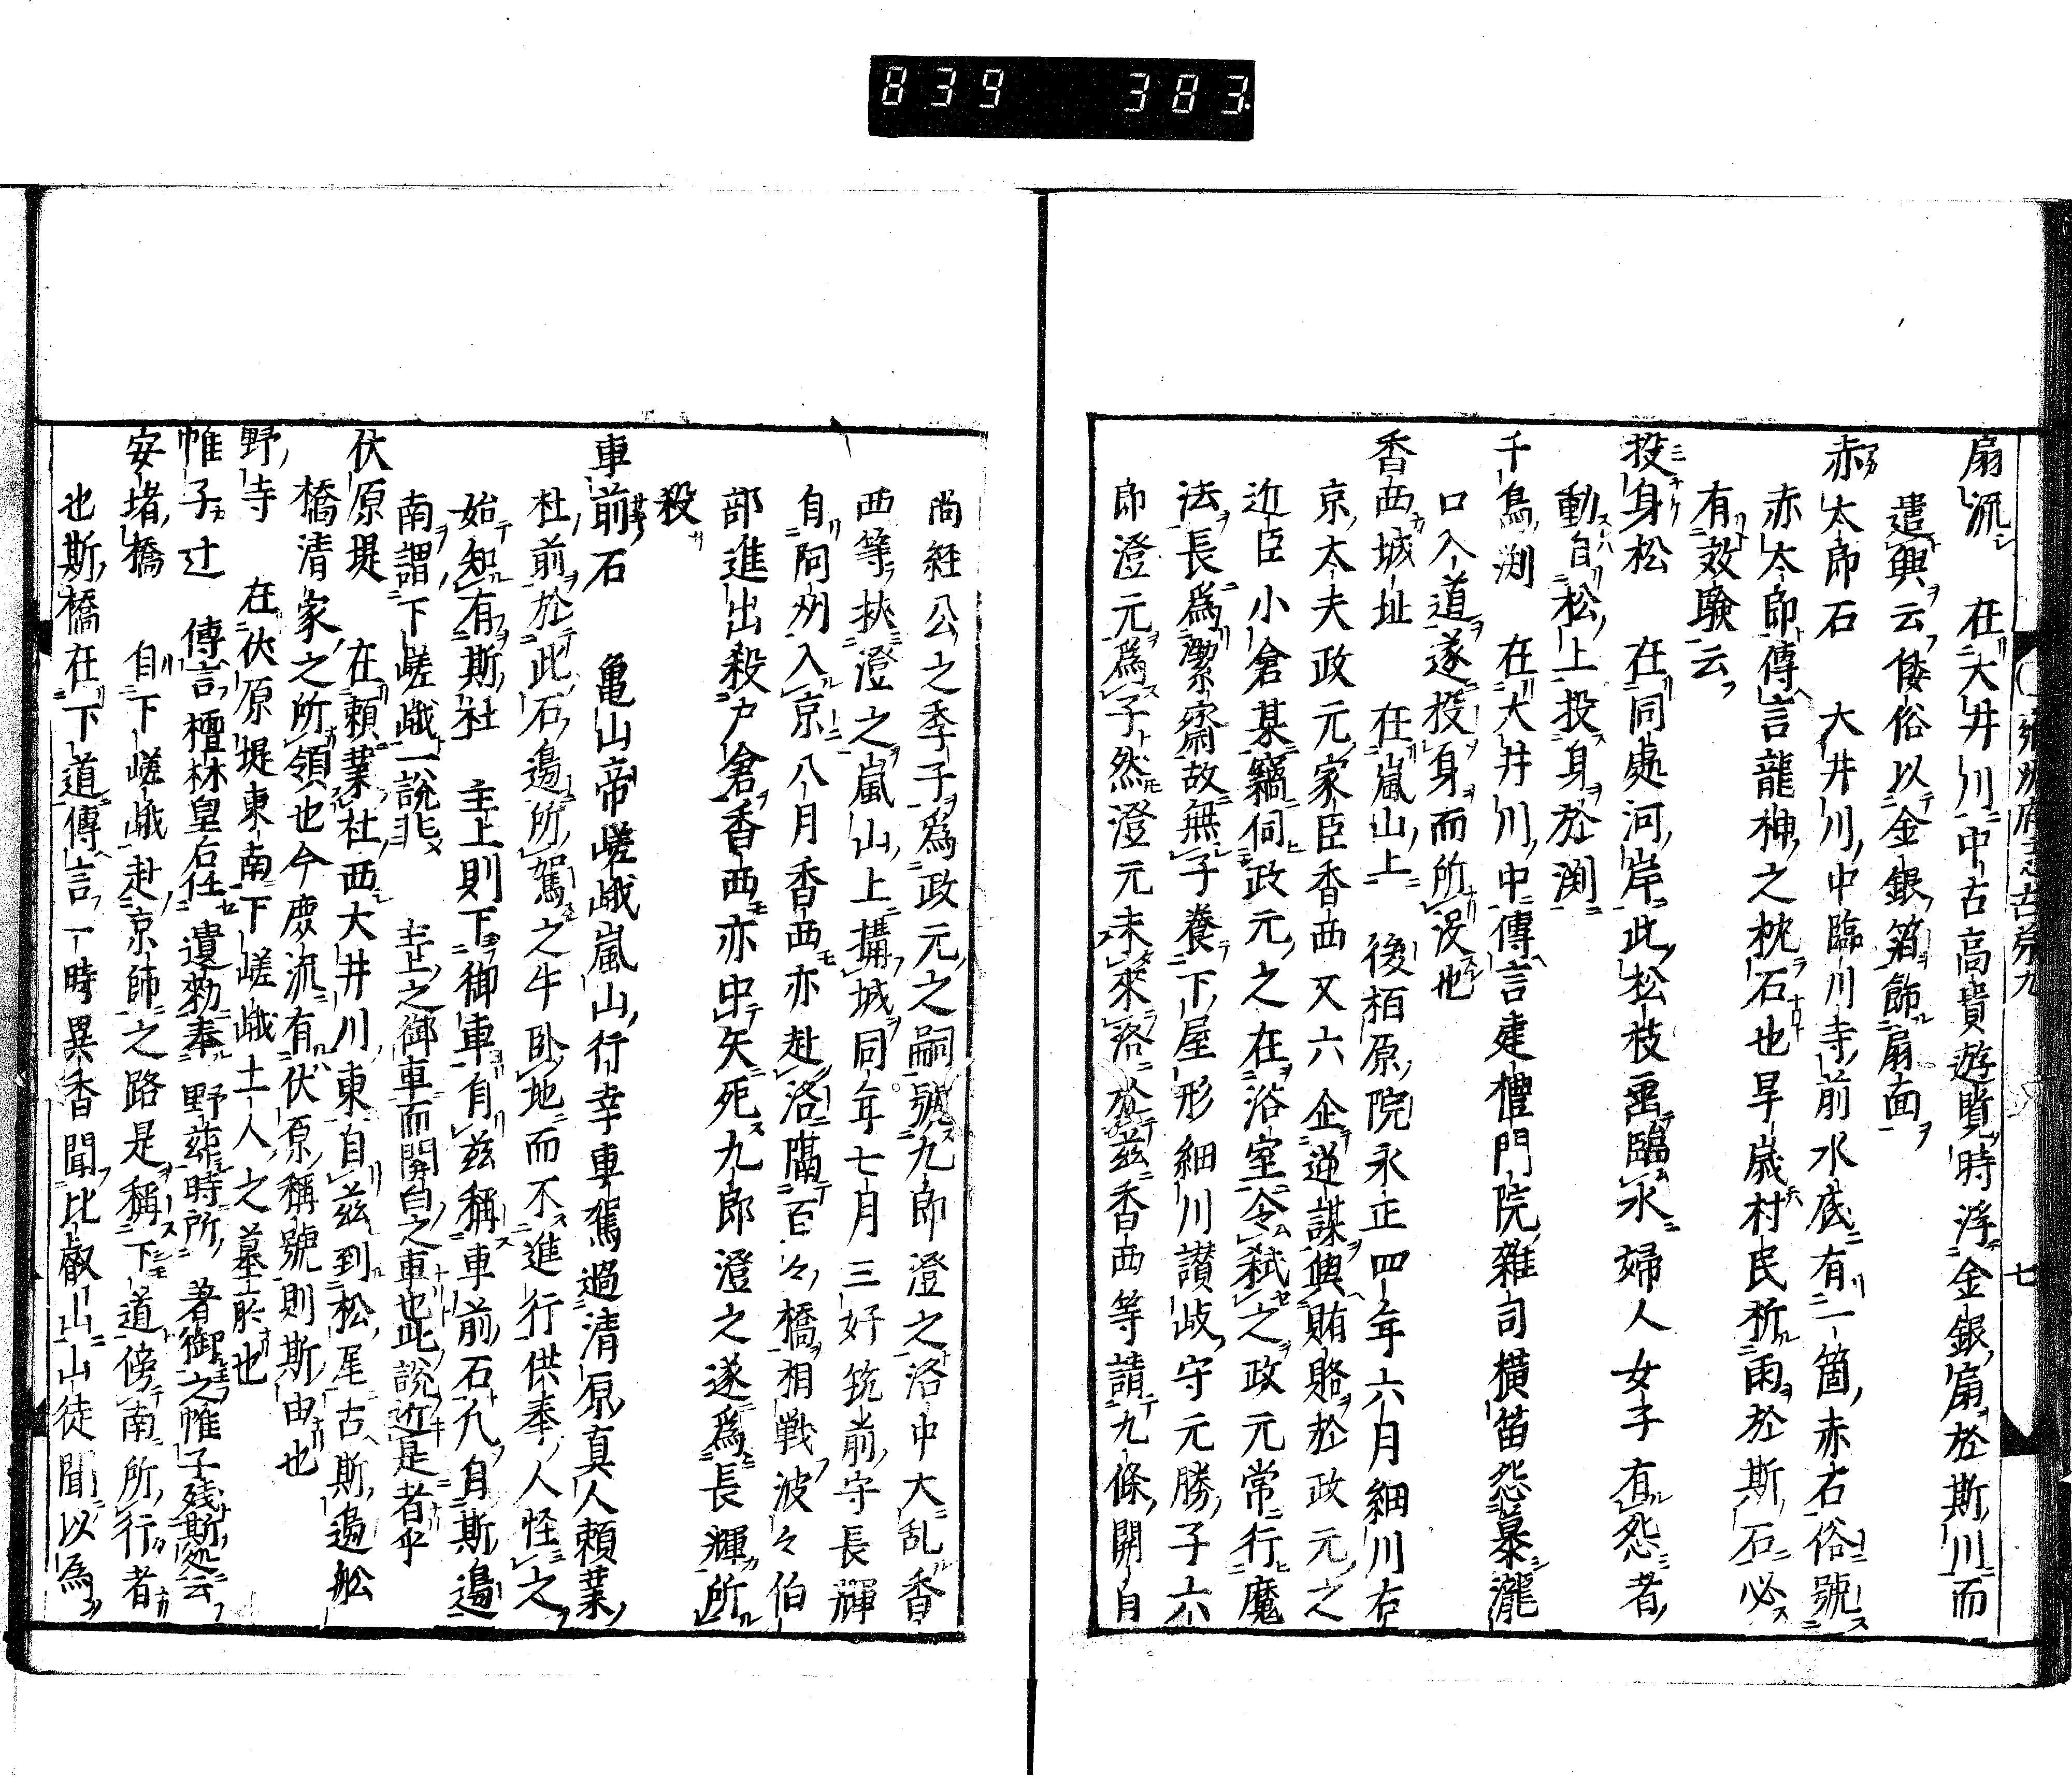 839 383
扇流 在大井川中古高貴遊覽時浮金銀扇於斯川而
遣興云倭俗以金銀箔飾扇面
赤太郎石 大井川中臨川寺前水底有一箇赤石俗號
赤太郎傳言龍神之枕石也旱歲村民祈雨於斯石必
有效驗云
投身松 在同處河岸此松枝垂臨水婦人女子有怨者
動自松上投身於渕
千鳥渕 在大井川中傳言建禮門院雜司橫笛怨暴瀧
口入道遂投身而所没也
香西城址 在嵐山上 後栢原院永正四年六月細川右
京太夫政元家臣香西又六企逆謀與賂於政元之
近臣小倉某竊伺政元之在浴室令弑之政元常行魔
法長爲潔齋故無子養下屋形細川讃岐守元勝子六
郎澄元爲子然澄元未來洛於茲香西等請九條關白
尚経公之季子爲政元之嗣號九郎澄之洛中大乱香
西等挾澄之嵐山上搆城同年七月三好筑前守長輝
自阿州入京八月香西亦赴洛隔百々橋相戰波々伯
部進出殺戸倉香西亦中矢死九郎澄之遂爲長輝所
殺
車前石 亀山帝嵯峨嵐山行幸車駕過清原真人頼業
社前於此石邊所駕之牛臥地而不進行供奉人怪之
始知有斯社 主上則下御車自茲稱車前石凡自斯邊
南謂下嵯峨一說非 主上之御車而關白之車也此說近是者乎
伏原堤 在頼業社西大井川東自茲到松尾古斯邊舩
橋清家之所領也今慶流有伏原稱號則斯由也
野寺 在伏原堤東南下嵯峨土人之墓所也
帷子辻 傳言檀林皇后任遺勅奉 野葬時所 著御之帷子殘斯処云
安堵橋 自下嵯峨赴京師之路是稱下道傍南所行者
也斯橋在下道傳言一時異香聞比叡山山徒聞以爲